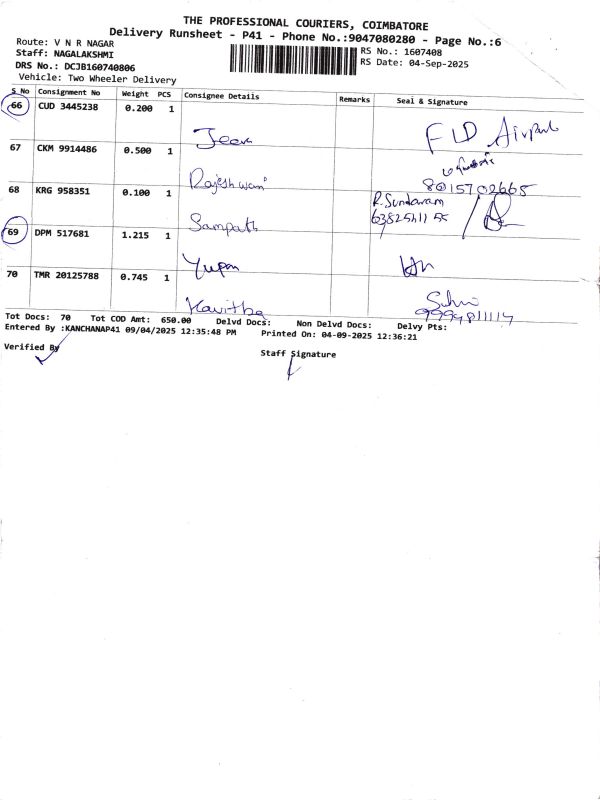 THE PROFESSIONAL COURIERS, COIMBATORE
Delivery Runsheet - P41 - Phone No.:9047080280 - Page No.:6
Route: V N R NAGAR
Staff: NAGALAKSHMI
RS No.: 1607408
DRS No.: DCJB160740806
RS Date: 04-Sep-2025
Vehicle: Two Wheeler Delivery
S No Consignment No Weight PCS Consignee Details Remarks Seal & Signature
66 CUD 3445238 0.200 1 Jeeva
67 CKM 9914486 0.500 1 Rajeshwari 8015702665
68 KRG 958351 0.100 1 Sampath R.Sundaram
69 DPM 517681 1.215 1
70 TMR 20125788 0.745 1 Kavitha
Tot Docs: 70 Tot COD Amt: 650.00 Delvd Docs: Non Delvd Docs: Delvy Pts:
Entered By :KANCHANAP41 09/04/2025 12:35:48 PM Printed On: 04-09-2025 12:36:21
Verified By
Staff Signature